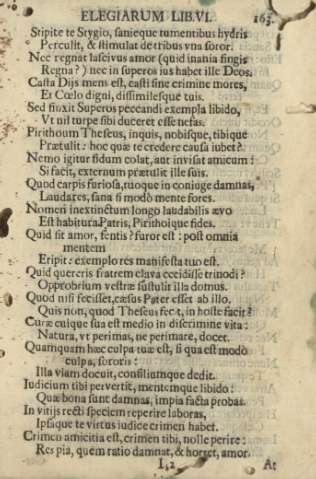 ELEGIARUM LIB.VI. 163.
Stipite te Stygio, sanieque tumentibus hydris
Perculit, & stimulat de tribus vna soror.
Nec regnat lascivus amor (quid inania fingis
Regna?) nec in superos ius habet ille Deos.
Casta Dijs mens est, casti sine crimine mores,
Et Cœlo digni, dissimilesque tuis.
Sed finxit Superos peccandi exempla libido,
Vt nil turpe sibi duceret esse nefas.
Pirithoum Theseus, inquis, nobisque, tibique
Prætulit: hoc quæ te credere causa iubet?
Nemo igitur fidum colat, aut invisat amicum:
Si facit, externum prætulit ille suis.
Quod carpis furiosa, tuoque in coniuge damnas,
Laudares, sana si modò mente fores.
Nomen inextinctum longo laudabilis ævo
Est habitura Patris, Pirithoique fides.
Quid sit amor, sentis? furor est: post omnia
mentem
Eripit: exemplo res manifesta tuo est.
Quid quereris fratrem clava cecidisse trinodi?
Opprobrium vestræ sustulit illa domus.
Quod nisi fecisset, cæsus Pater esset ab illo.
Quis non, quod Theseus fecit, in hoste facit?
Curæ cuique sua est medio in discrimine vita:
Natura, vt perimas, ne perimare, docet.
Quamquam hæc culpa tua est, si qua est modò
culpa, sororis:
Illa viam docuit, consiliumque dedit.
Iudicium tibi pervertit, mentemque libido:
Quæ bona sunt damnas, impia facta probas.
In vitijs recti speciem reperire laboras,
Ipsaque te virtus iudice crimen habet.
Crimen amicitia est, crimen tibi, nolle perire:
Res pia, quem ratio damnat, & horret, amor.
L 2 At